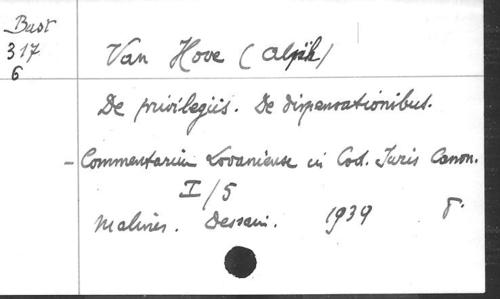 Bast
317
6
Van Hove (Alph)
De privilegiis. De dispensationibus.
- Commentarium Lovaniense in Cod. Juris Canon.
I/5
Malines. Dessain. 1939 8°